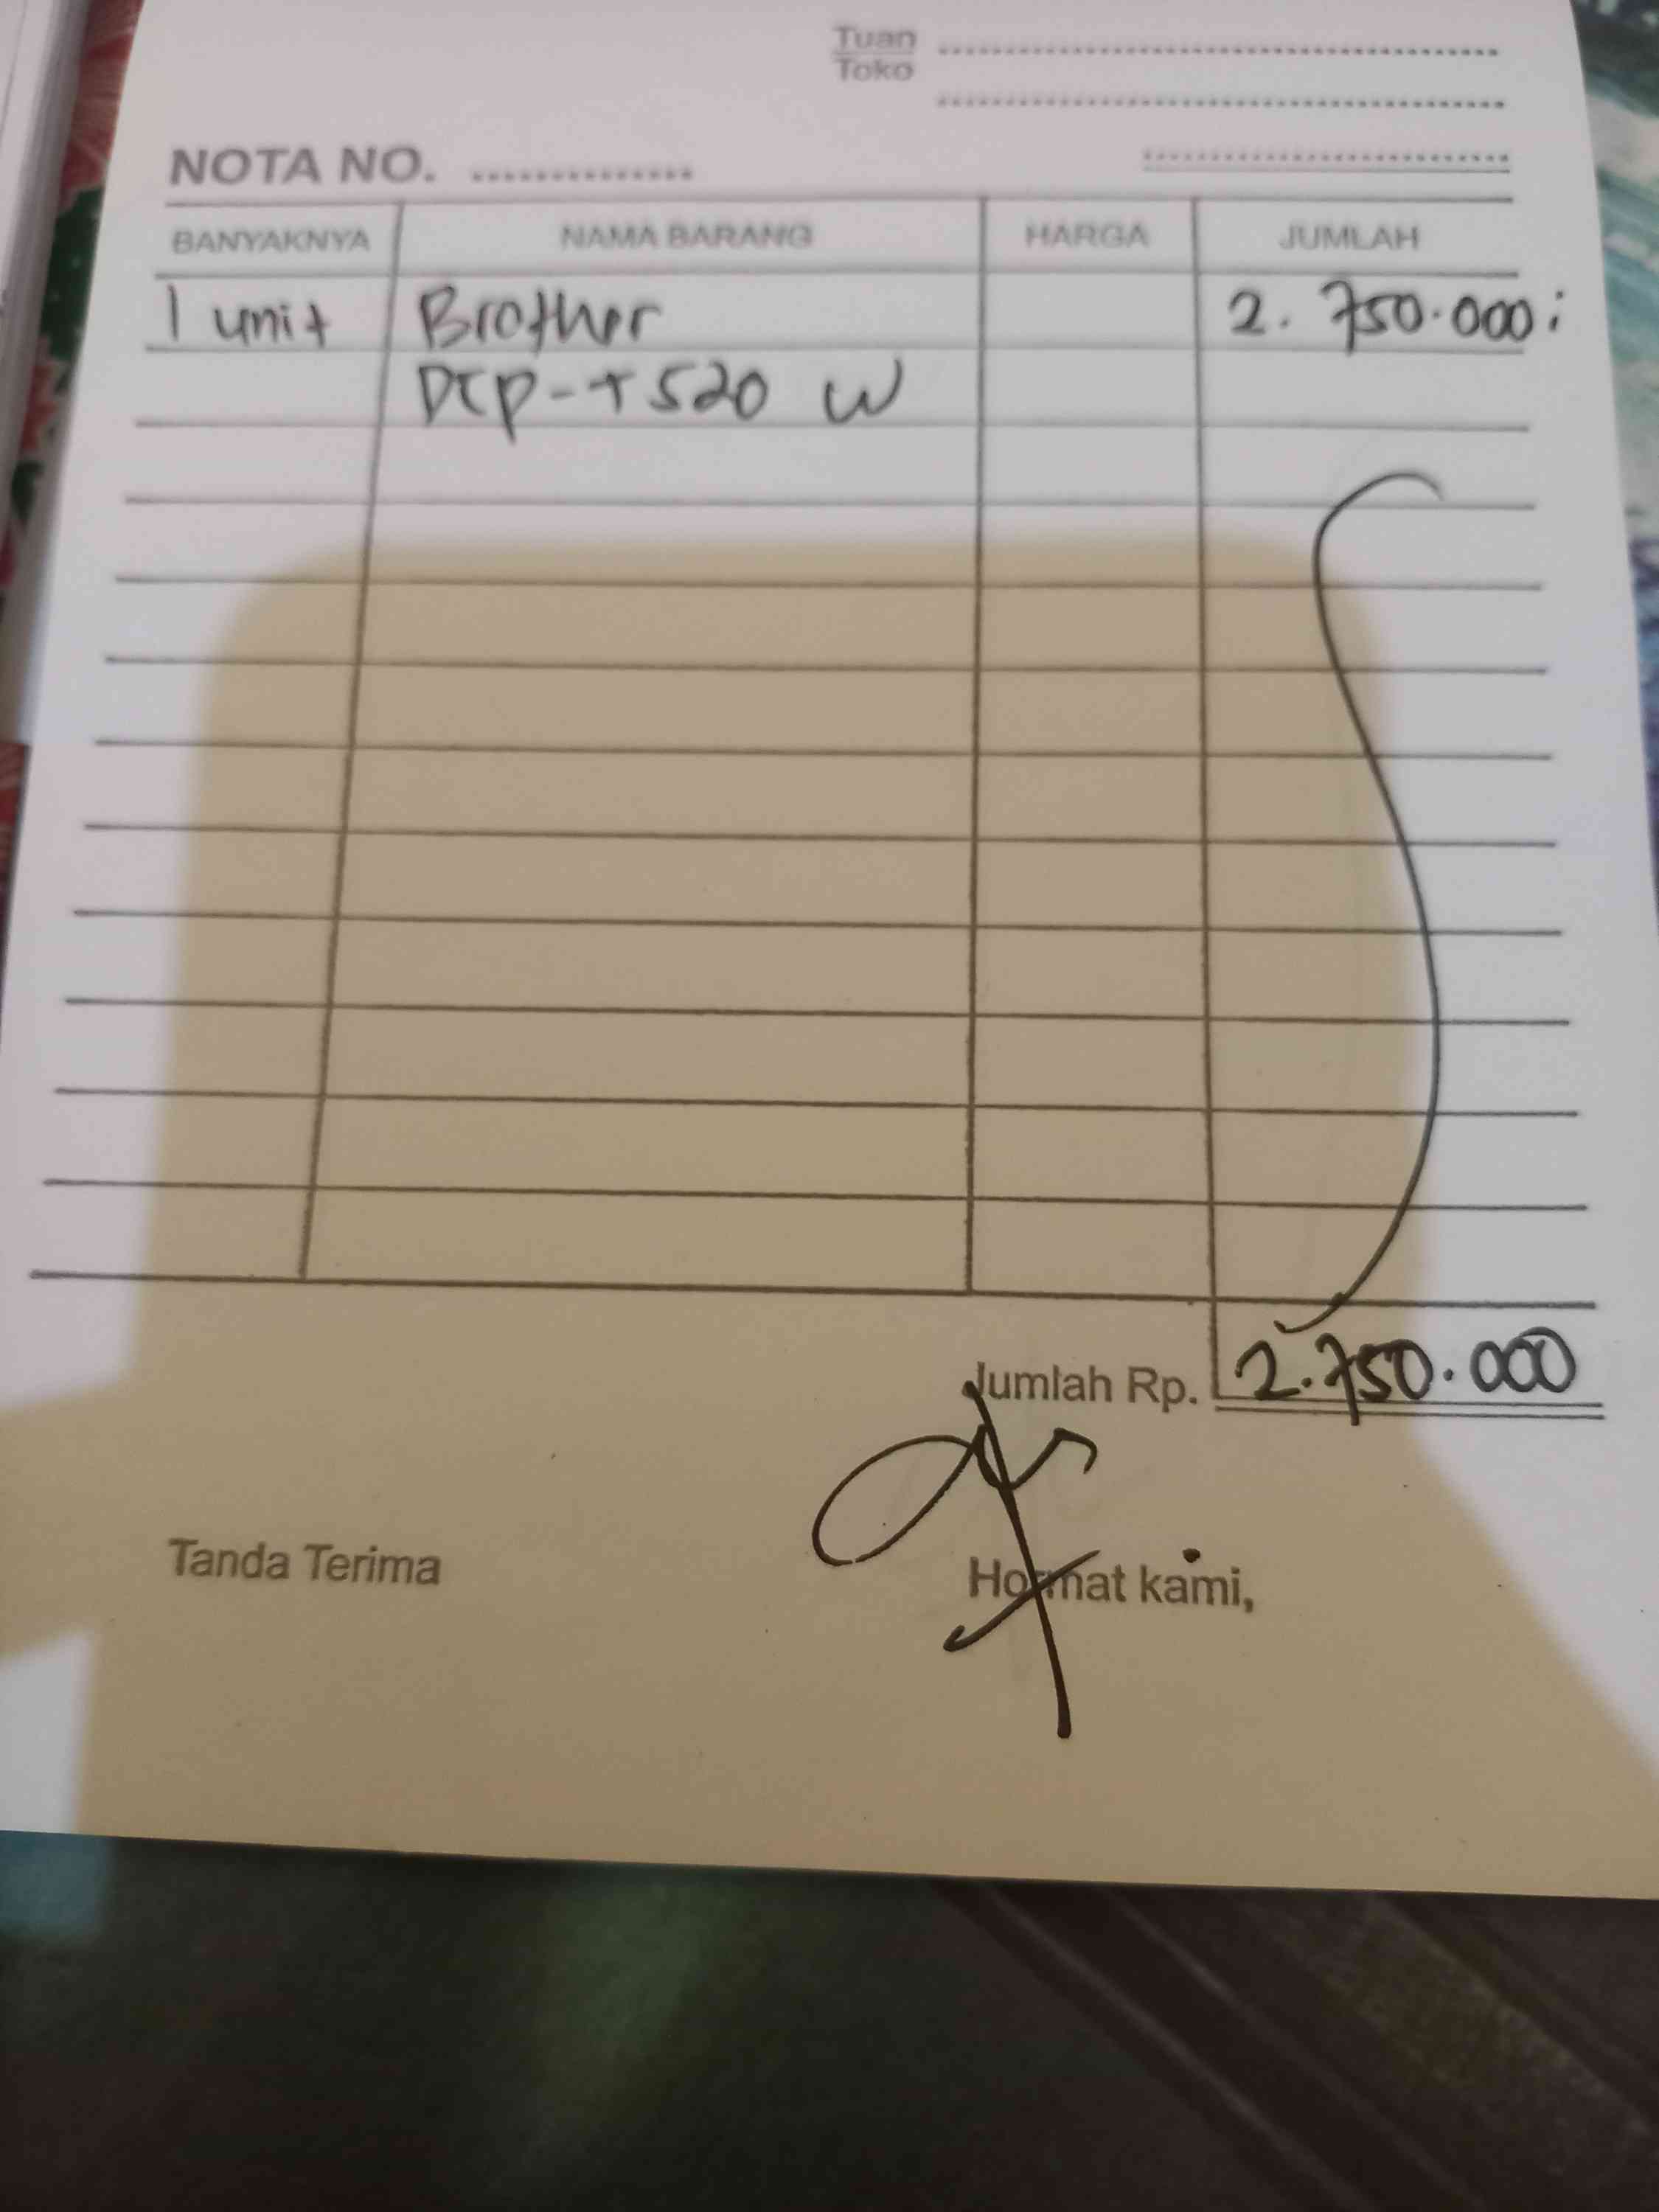 Tuan
Toko
NOTA NO. ...............
BANYAKNYA NAMA BARANG HARGA JUMLAH
1 unit Brother 2. 750.000;
DCP-T520 W
Jumlah Rp. 2.750.000
Tanda Terima Hormat kami,